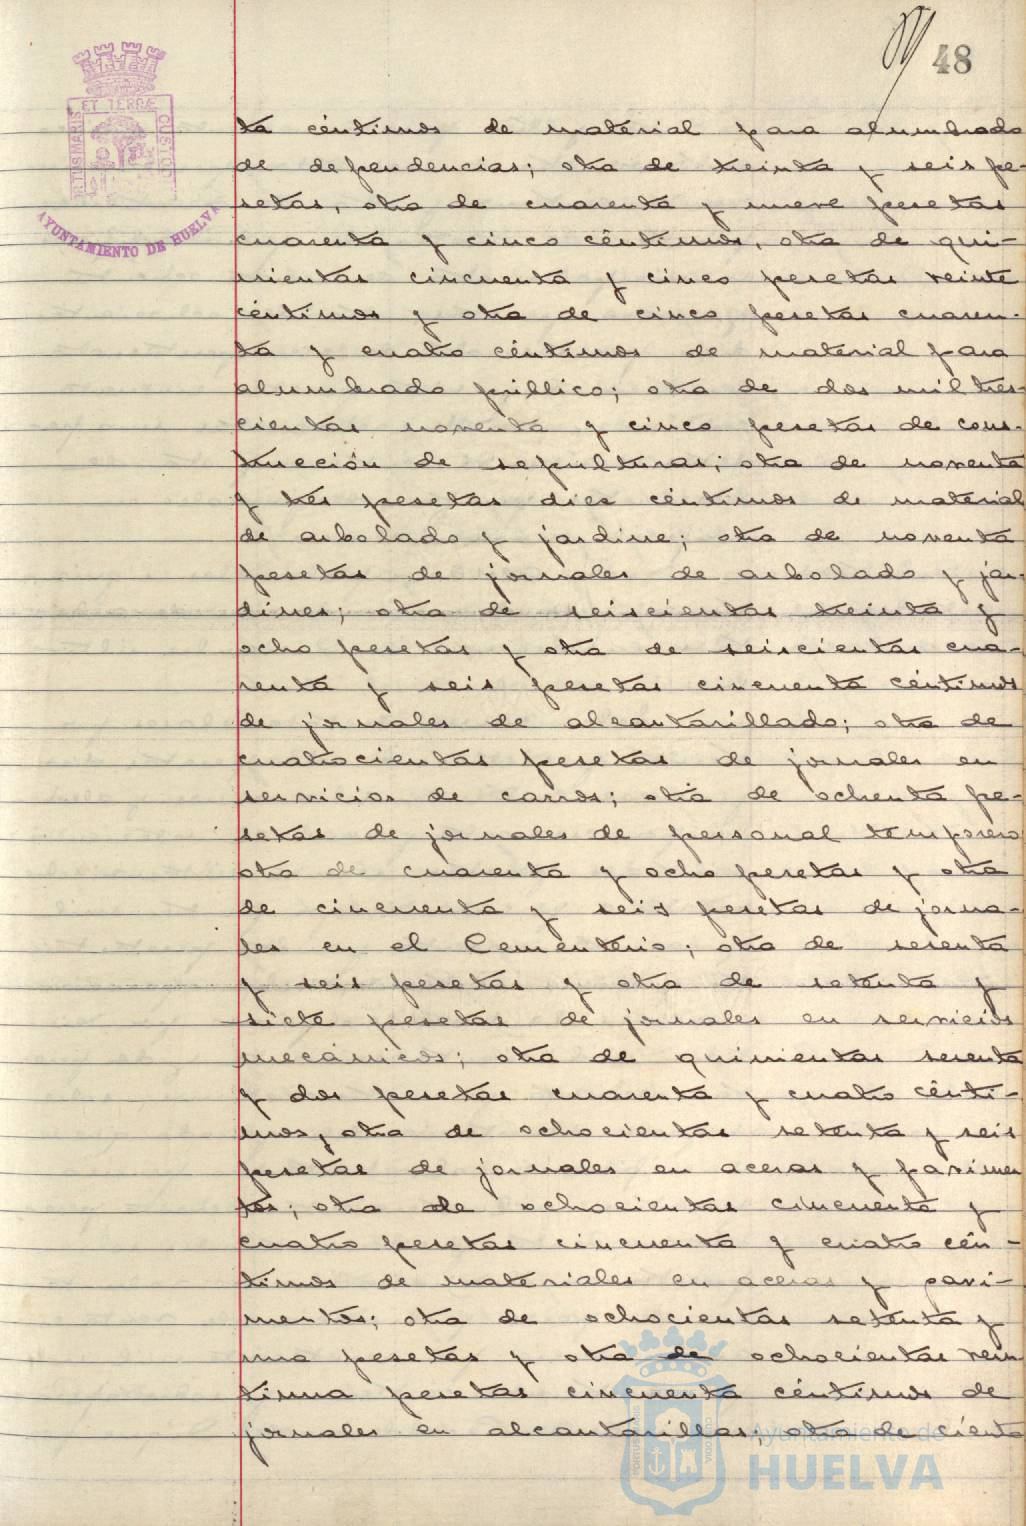 48
ET TERRÆ
CUSTOD
AYUNTAMIENTO DE HUELVA
ta céntimos de material para alumbrado
de dependencias; otra de treinta y seis pe-
setas, otra de cuarenta y nueve pesetas
cuarenta y cinco céntimos, otra de qui-
nientas cincuenta y cinco pesetas veinte
céntimos y otra de cinco pesetas cuaren-
ta y cuatro céntimos de material para
alumbrado público; otra de dos mil tres-
cientas noventa y cinco pesetas de cons-
trucción de sepulturas; otra de noventa
y tres pesetas diez céntimos de material
de arbolado y jardine; otra de noventa
pesetas de jornales de arbolado y jar-
dines; otra de seiscientas treinta y
ocho pesetas y otra de seiscientas cua-
renta y seis pesetas cincuenta céntimos
de jornales de alcantarillado; otra de
cuatrocientas pesetas de jornales en
servicios de carros; otra de ochenta pe-
setas de jornales de personal temporero
otra de cuarenta y ocho pesetas y otra
de cincuenta y seis pesetas de jorna-
les en el Cementerio; otra de sesenta
y seis pesetas y otra de setenta y
siete pesetas de jornales en servicios
mecánicos; otra de quinientas sesenta
y dos pesetas cuarenta y cuatro cénti-
mos, otra de ochocientas setenta y seis
pesetas de jornales en aceras y pavimen
tos; otra de ochocientas cincuenta y
cuatro pesetas cincuenta y cuatro cén-
timos de materiales en aceras y pavi-
mentos; otra de ochocientas setenta y
una pesetas y otra de ochocientas vein
tiuna pesetas cincuenta céntimos de
jornales en alcantarillas; otra de ciento
Ayuntamiento de
HUELVA